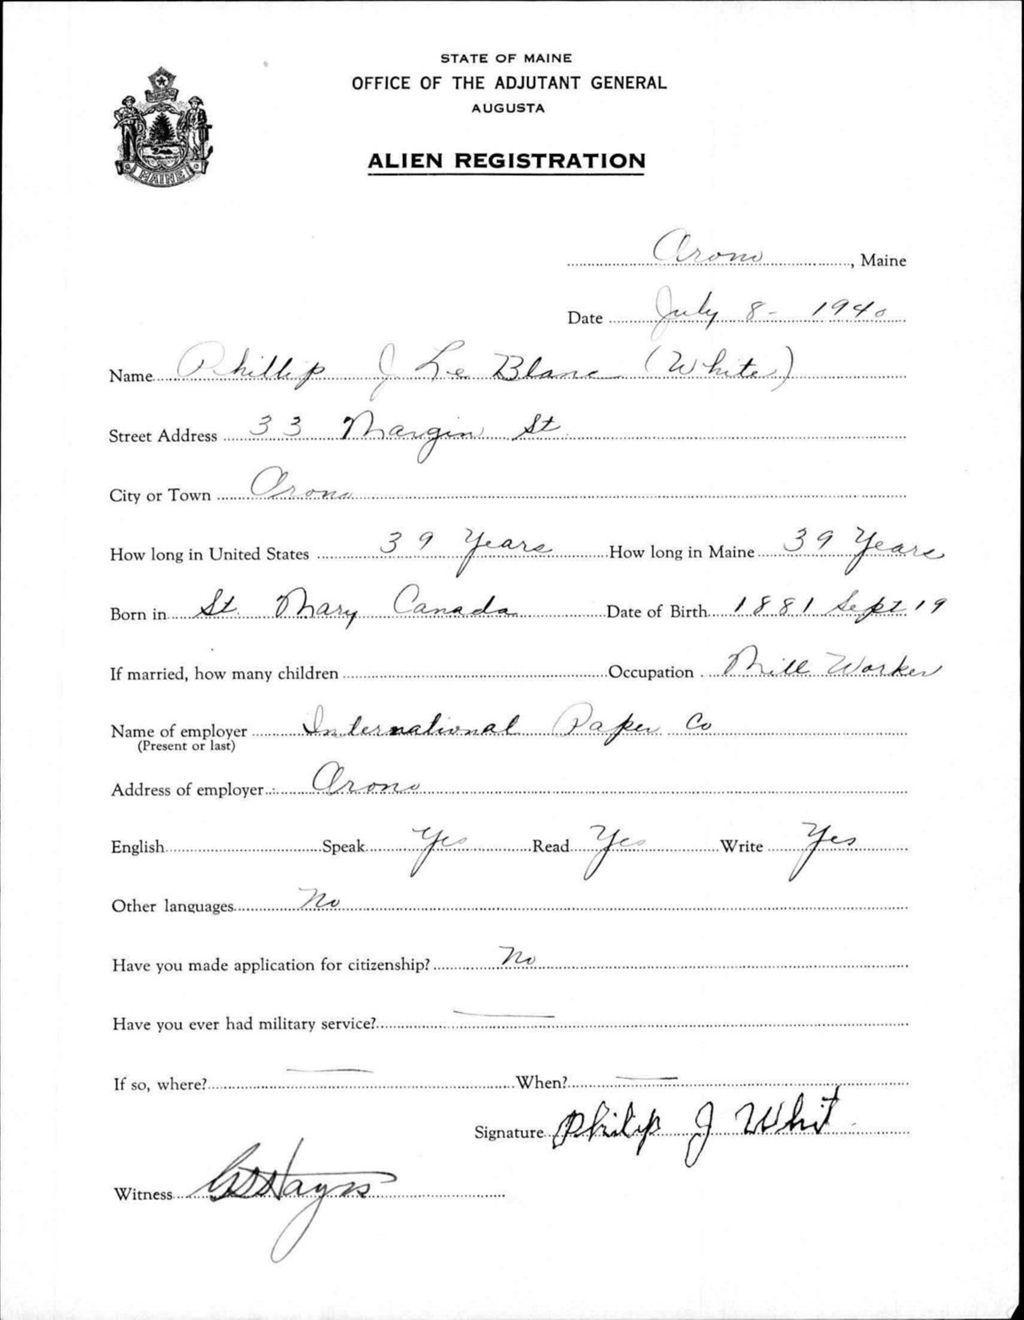 STATE OF MAINE
OFFICE OF THE ADJUTANT GENERAL
AUGUSTA
ALIEN REGISTRATION
MAINE
Orono, Maine
Date July 8- 1940
Name Phillip J Le Blanc (White)
Street Address 33 Margin St.
City or Town Orono
How long in United States 39 Years How long in Maine 39 Years
Born in St. Mary Canada Date of Birth 1881 Sept 19
If married, how many children Occupation Mill Worker
Name of employer International Paper Co
(Present or last)
Address of employer Orono
English Speak Yes Read Yes Write Yes
Other languages No
Have you made application for citizenship? No
Have you ever had military service?
If so, where? When?
Signature Philip J Whit
Witness Hayes